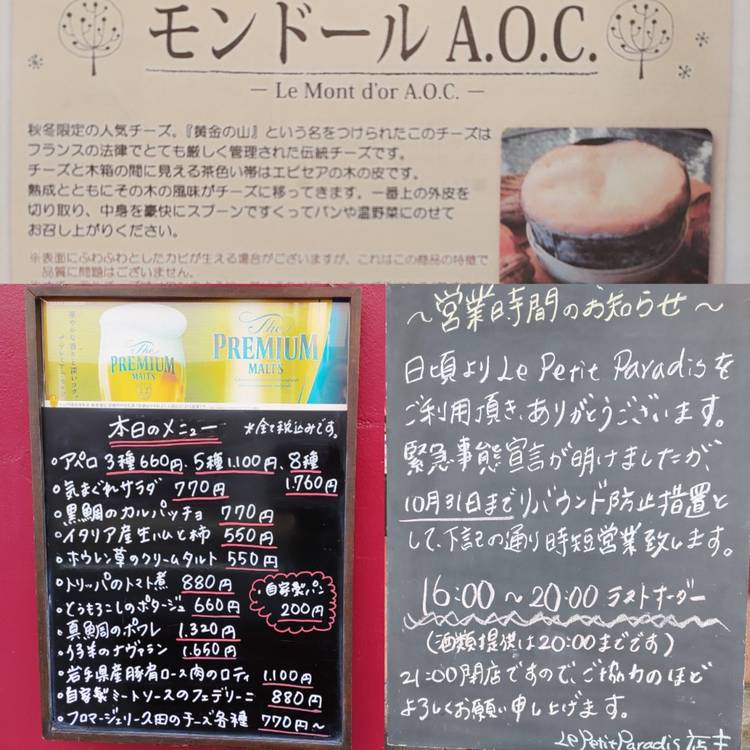 モンドール A.O.C.
Le Mont d'or A.O.C.
秋冬限定の人気チーズ。『黄金の山』という名をつけられたこのチーズは
フランスの法律でとても厳しく管理された伝統チーズです。
チーズと木箱の間に見える茶色い帯はエピセアの木の皮です。
熟成とともにその木の風味がチーズに移ってきます。一番上の外皮を
切り取り、中身を豪快にスプーンですくってパンや温野菜にのせて
お召し上がりください。
※表面にふわふわとしたカビが生える場合がございますが、これはこの商品の特徴で
品質に問題はございません。
The PREMIUM MALTS
The PREMIUM MALTS
本日のメニュー ※全て税込みです。
・アペロ 3種660円、5種1.100円、8種
1.760円
・気まぐれサラダ 770円
・黒鯛のカルパッチョ 770円
・イタリア産生ハムと柿 550円
・ホウレン草のクリームタルト 550円
・トリッパのトマト煮 880円
自家製パン
200円
・とうもろこしのポタージュ 660円
・真鯛のポワレ 1.320円
・仔羊のナヴァラン 1.650円
・岩手県産豚肩ロース肉のロティ 1.100円
・自家製ミートソースのフェデリーニ 880円
・フロマージェリー久田のチーズ各種 770円〜
〜営業時間のお知らせ〜
日頃より Le Petit Paradisを
ご利用頂き、ありがとうございます。
緊急事態宣言が明けましたが、
10月31日までリバウンド防止措置と
して、下記の通り時短営業致します。
16:00〜20:00 ラストオーダー
(酒類提供は20:00までです)
21:00閉店ですので、ご協力のほど
よろしくお願い申し上げます。
Le Petit Paradis 店主